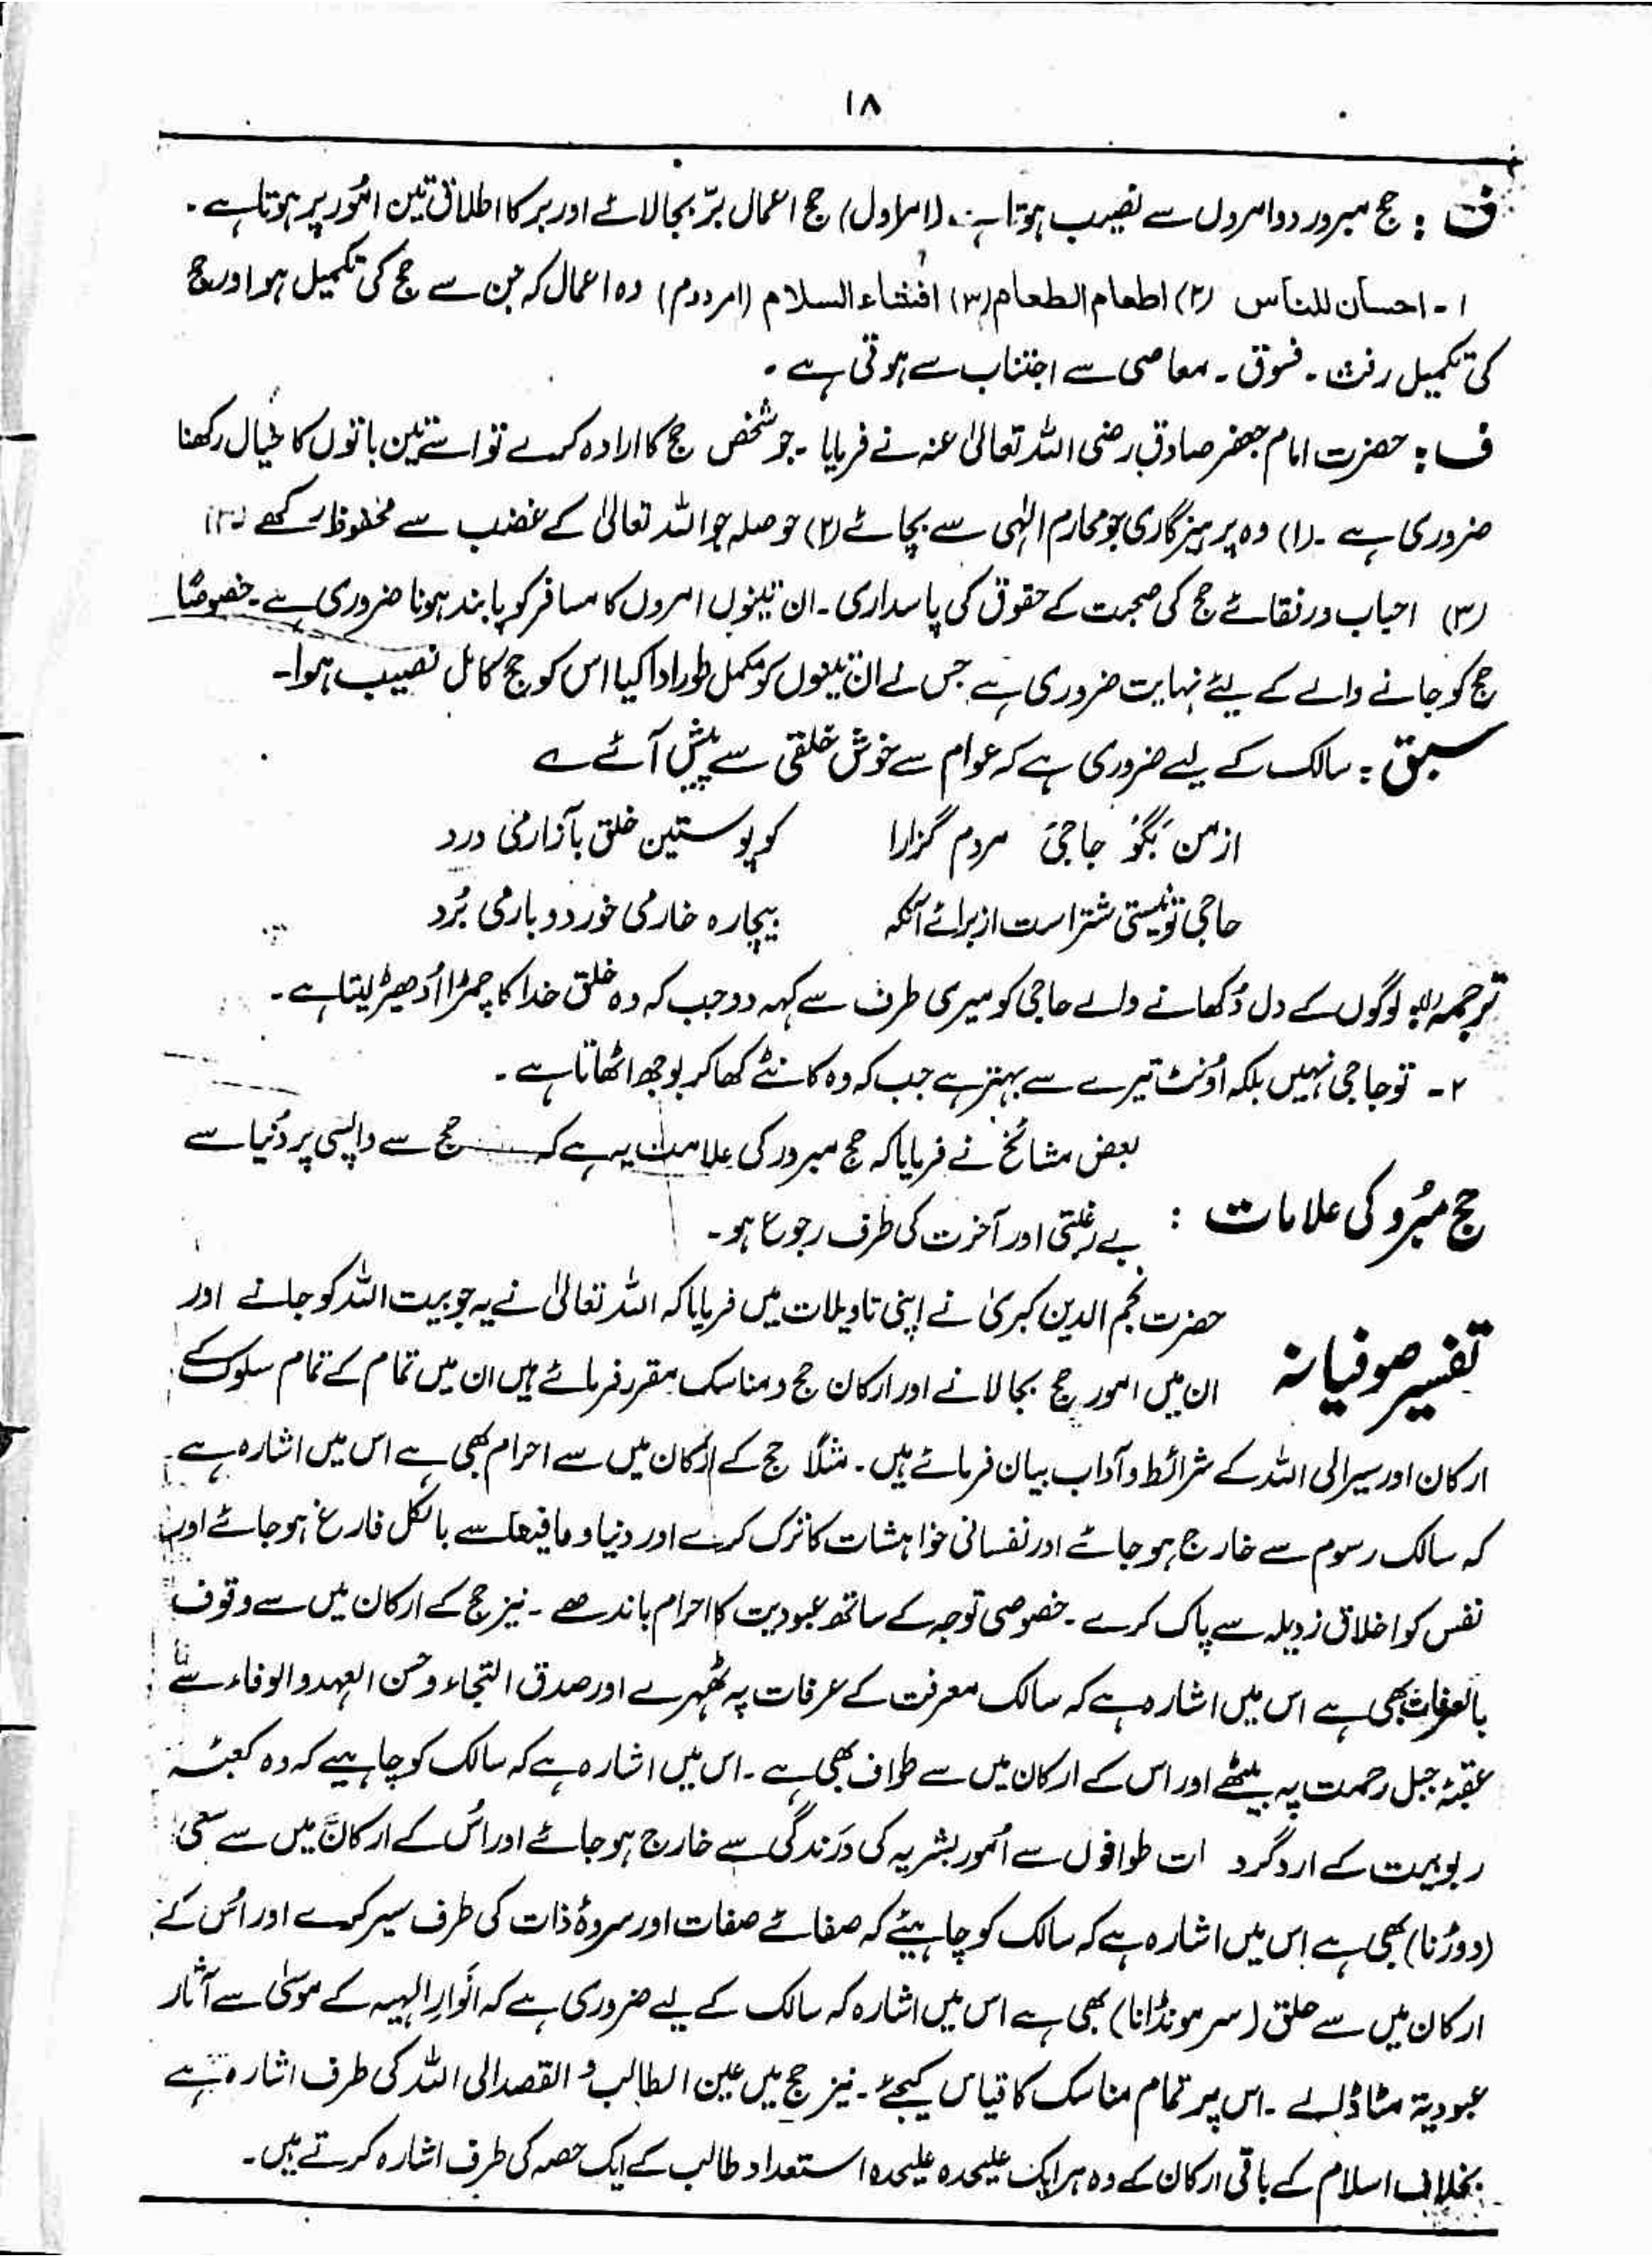 ۱۸
ف : حج مبرور دو امروں سے نصیب ہوتا ہے۔ (امر اول) حج اعمال برّ بجا لائے اور بر کا اطلاق تین امُور پر ہوتا ہے۔
۱۔ احسان للناس (۲) اطعام الطعام (۳) افشاء السلام (امر دوم) وہ اعمال کہ جن سے حج کی تکمیل ہو اور حج
کی تکمیل رفث۔ فسوق۔ معاصی سے اجتناب سے ہوتی ہے۔
ف : حضرت امام جعفر صادق رضی اللہ تعالیٰ عنہ نے فرمایا۔ جو شخص حج کا ارادہ کرے تو اسے تین باتوں کا خیال رکھنا
ضروری ہے۔ (۱) وہ پرہیزگاری جو محارم الٰہی سے بچائے (۲) حوصلہ جو اللہ تعالیٰ کے غضب سے محفوظ رکھے (۳)
(۳) احباب و رفقائے حج کی صحبت کے حقوق کی پاسداری۔ ان تینوں امروں کا مسافر کو پابند ہونا ضروری ہے۔ خصوصًا
حج کو جانے والے کے لیئے نہایت ضروری ہے جس نے ان تینوں کو مکمل طور ادا کیا اس کو حج کامل نصیب ہوا۔
سبق : سالک کے لیے ضروری ہے کہ عوام سے خوش خلقی سے پیش آئے ے
از من بَگوُ حاجیَ مردم گزارا کو پوستین خلق بآزار می درد
حاجی تو نیستی شتر است از برائے آنکہ بیچارہ خار می خورد و بار می بُرد
ترجمہ (۱) لوگوں کے دل دُکھانے والے حاجی کو میری طرف سے کہہ دو جب کہ وہ خلق خدا کا چمڑا اُدھیڑ لیتا ہے۔
۲۔ تو حاجی نہیں بلکہ اوُنٹ تیرے سے بہتر ہے جب کہ وہ کانٹے کھا کر بوجھ اٹھاتا ہے۔
بعض مشائخ نے فرمایا کہ حج مبرور کی علامت یہ ہے کہ حج سے واپسی پر دُنیا سے
حج مبُرو کی علامات :
بے رغبتی اور آخرت کی طرف رجوع ہو۔
حضرت نجم الدین کبریٰ نے اپنی تاویلات میں فرمایا کہ اللہ تعالیٰ نے یہ جو بیت اللہ کو جانے اور
تفسیر صوفیانہ
ان میں امور حج بجا لانے اور ارکان حج و مناسک مقرر فرمائے ہیں ان میں تمام کے تمام سلوک کے
ارکان اور سیر الی اللہ کے شرائط و آداب بیان فرمائے ہیں۔ مثلًا حج کے ارکان میں سے احرام بھی ہے اس میں اشارہ ہے
کہ سالک رسوم سے خارج ہو جائے اور نفسانی خواہشات کا ترک کرے اور دنیا و مافیھا سے بالکل فارغ ہو جائے اور
نفس کو اخلاق زدیلہ سے پاک کرے۔ خصوصی توجہ کے ساتھ عبودیت کا احرام باندھے۔ نیز حج کے ارکان میں سے وقوف
بالعرفات بھی ہے اس میں اشارہ ہے کہ سالک معرفت کے عرفات پہ ٹھہرے اور صدق التجاء و حسن العہد و الوفاء سے
عقبۂ جبل رحمت پہ بیٹھے اور اس کے ارکان میں سے طواف بھی ہے۔ اس میں اشارہ ہے کہ سالک کو چاہیے کہ وہ کعبۂ
ربوبیت کے ارد گرد ات طوافوں سے اُمور بشریہ کی دَرندگی سے خارج ہو جائے اور اُس کے ارکان میں سے سعی
(دوڑنا) بھی ہے اِس میں اشارہ ہے کہ سالک کو چاہیئے کہ صفائے صفات اور مروۂ ذات کی طرف سیر کرے اور اُس کے
ارکان میں سے حلق (سر مونڈانا) بھی ہے اس میں اشارہ کہ سالک کے لیے ضروری ہے کہ انَوارِ الہٰیہ کے موسیٰ سے آثار
عبودیۃ مٹا ڈالے۔ اس پر تمام مناسک کا قیاس کیجئے۔ نیز حج میں عین الطالب و القصد الی اللہ کی طرف اشارہ ہے
بخلاف اسلام کے باقی ارکان کے وہ ہر ایک علیحدہ علیحدہ استعداد طالب کے ایک حصہ کی طرف اشارہ کرتے ہیں۔